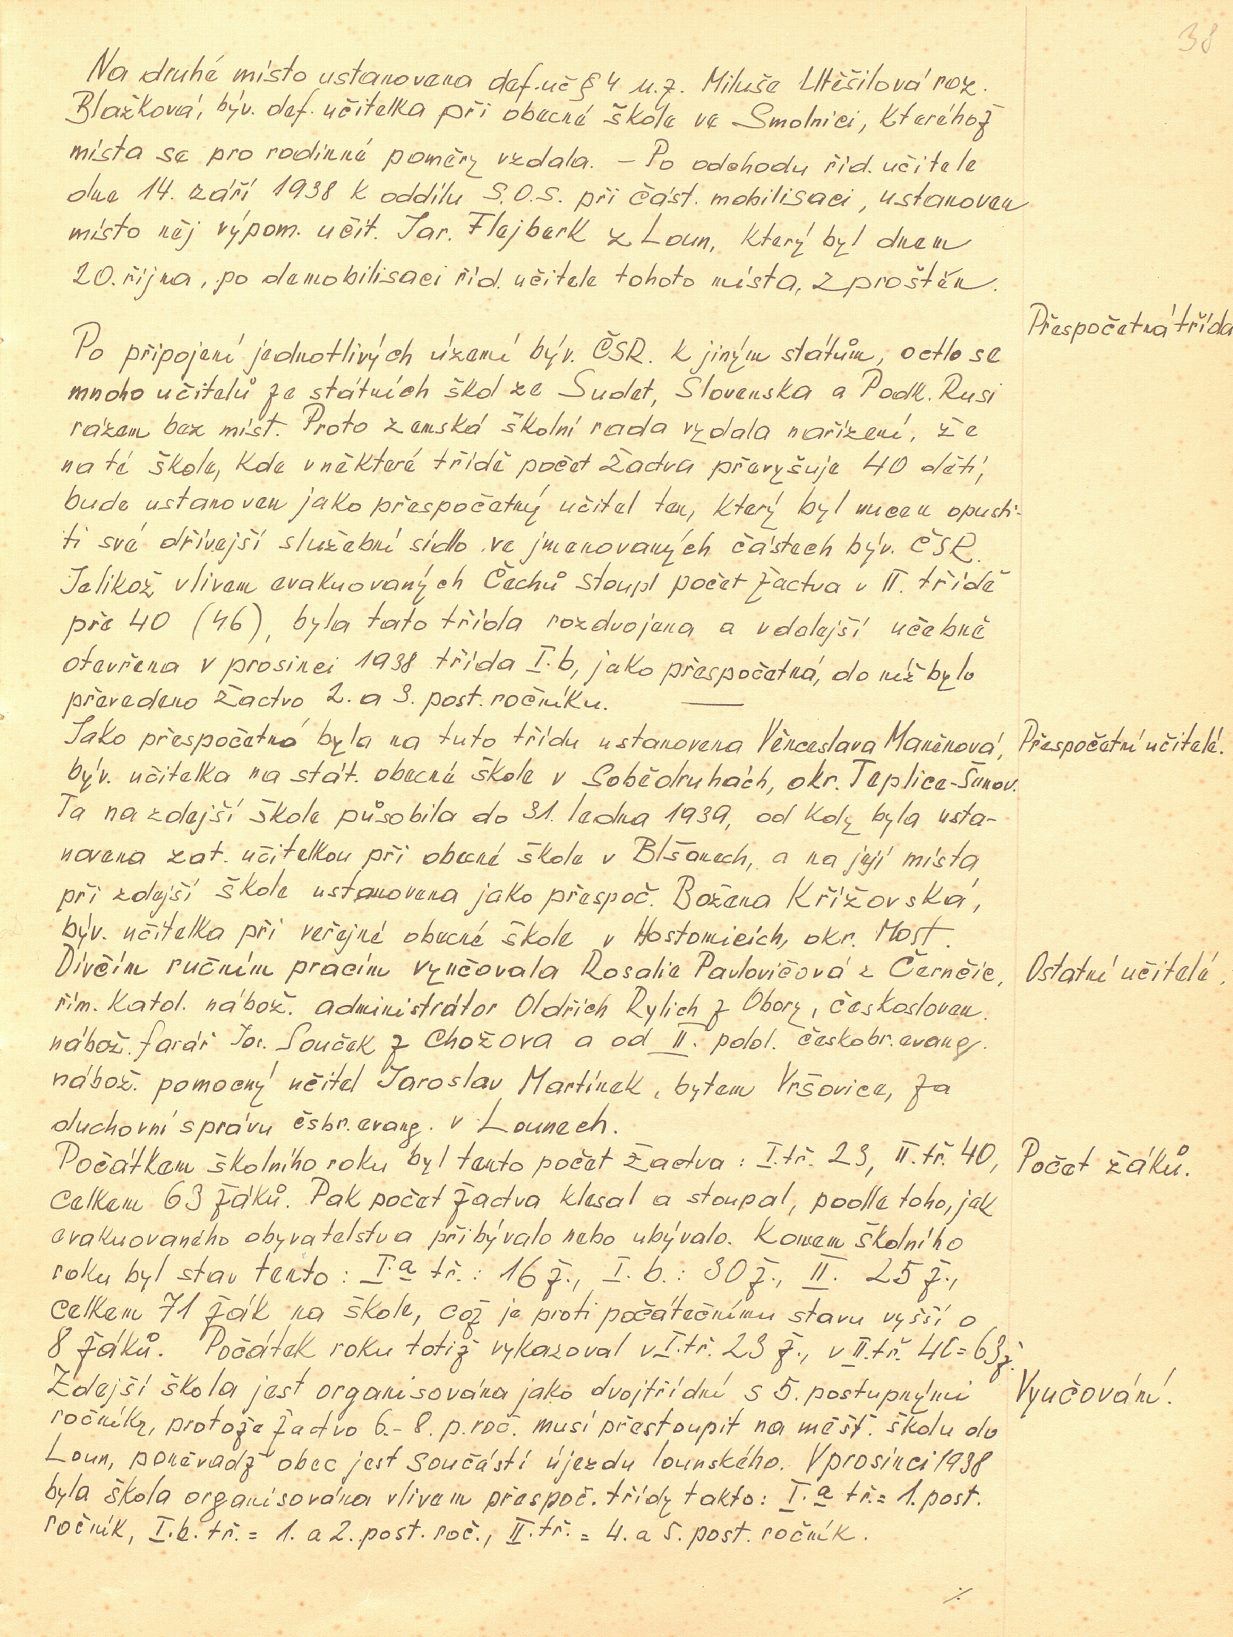 38
Na druhé místo ustanovena def.uč § 4 u.z. Miluše Utěšilová roz.
Blažková, býv. def. učitelka při obecné škole ve Smolnici, kteréhož
místa se pro rodinné poměry vzdala. – Po odchodu říd. učitele
dne 14. září 1938 k oddílu S.O.S. při část. mobilisaci, ustanoven
místo něj výpom. učit. Jar. Flejberk z Loun, který byl dnem
20. října, po demobilisaci říd. učitele tohoto místa, zproštěn.
Přespočetná třída
Po připojení jednotlivých území býv. ČSR. k jiným státům, octlo se
mnoho učitelů ze státních škol ze Sudet, Slovenska a Podk. Rusi
rázem bez míst. Proto zemská školní rada vydala nařízení, že
na té škole, kde v některé třídě počet žactva převyšuje 40 dětí,
bude ustanoven jako přespočetný učitel ten, který byl nucen opusti-
ti své dřívejší služební sídlo ve jmenovaných částech býv. ČSR.
Jelikož vlivem evakuovaných Čechů stoupl počet žactva v II. třídě
pře 40 (46), byla tato třída rozdvojena a v dalejší učebně
otevřena v prosinci 1938 třída I.b, jako přespočetná, do níž bylo
převedeno žactvo 2. a 3. post. ročníku. —
Jako přespočetná byla na tuto třídu ustanovena Věnceslava Maněnová, Přespočetní učitelé.
býv. učitelka na stát. obecné škole v Sobědruhách, okr. Teplice-Šanov.
Ta na zdejší škole působila do 31. ledna 1939, od kdy byla usta-
novena zat. učitelkou při obecné škole v Blšanech, a na její místa
při zdejší škole ustanovena jako přespoč. Božena Křížovská,
býv. učitelka při veřejné obecné škole v Hostomicích, okr. Most.
Dívčím ručním pracím vyučovala Rosalie Pavlovičová z Černčic, Ostatní učitelé.
řím. katol. nábož. administrátor Oldřich Rylich z Obory, českosloven.
nábož. farář Jos. Souček z Chožova a od II. polol. českobr. evang.
nábož. pomocný učitel Jaroslav Martínek, bytem Vršovice, za
duchovní správu čsbr. evang. v Lounech.
Počátkem školního roku byl tento počet žactva: I.tř. 23, II.tř. 40, Počet žáků.
celkem 63 žáků. Pak počet žactva klesal a stoupal, podle toho, jak
evakuovaného obyvatelstva přibývalo nebo ubývalo. Koncem školního
roku byl stav tento: I.a tř.: 16 ž., I. b.: 30 ž., II. 25 ž.,
celkem 71 žák na škole, což je proti počátečnímu stavu vyšší o
8 žáků. Počátek roku totiž vykazoval v I.tř. 23 ž., v II.tř. 40 = 63 ž.
Zdejší škola jest organisována jako dvojtřídní s 5. postupnými Vyučování.
ročníky, protože žactvo 6.–8. p.roč. musí přestoupit na měšť. školu do
Loun, poněvadž obec jest součástí újezdu lounského. V prosinci 1938
byla škola organisována vlivem přespoč. třídy takto: I.a tř. = 1. post.
ročník, I.b. tř. = 1. a 2. post. roč., II. tř. = 4. a 5. post. ročník.
./.